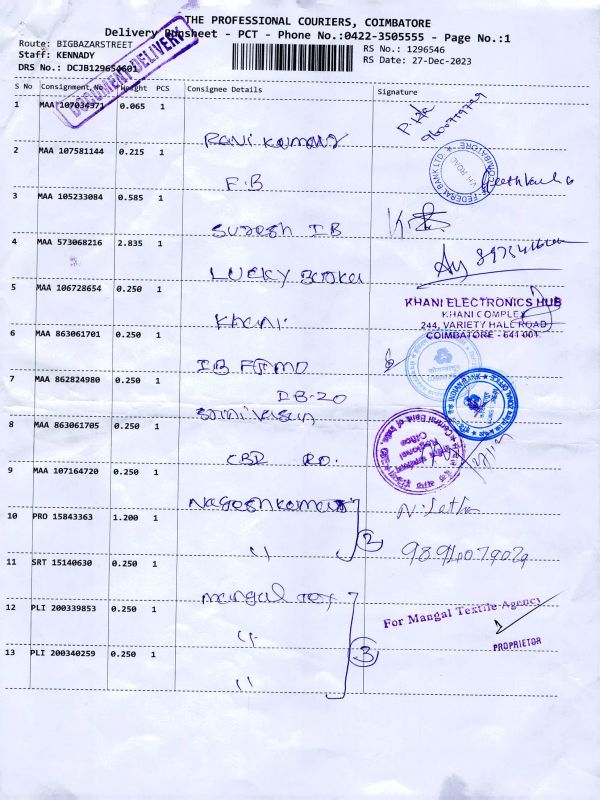 THE PROFESSIONAL COURIERS, COIMBATORE
Delivery Runsheet - PCT - Phone No.:0422-3505555 - Page No.:1
Route: BIGBAZARSTREET
RS No.: 1296546
Staff: KENNADY
RS Date: 27-Dec-2023
DRS No.: DCJB129654601
DOCUMENT DELIVERY
S No Consignment No Weight PCS Consignee Details Signature
1 MAA 107034371 0.065 1
Ravi kumar
2 MAA 107581144 0.215 1
F.B
FEDERAL BANK LTD COIMBATORE
VH ROAD
3 MAA 105233084 0.585 1
Suresh IB
4 MAA 573068216 2.835 1
LUCKY
5 MAA 106728654 0.250 1
Khani
KHANI ELECTRONICS HUB
KHANI COMPLEX
244, VARIETY HALL ROAD
COIMBATORE - 641 001.
6 MAA 863061701 0.250 1
IB
7 MAA 862824980 0.250 1
IB-20
INDIAN BANK
8 MAA 863061705 0.250 1
CBD RO.
Central Bank of India
Regional
Office
9 MAA 107164720 0.250 1
Nageshkumar
10 PRO 15843363 1.200 1
" 2
11 SRT 15140630 0.250 1
mangal Tex
12 PLI 200339853 0.250 1
"
For Mangal Textile Agency
PROPRIETOR
13 PLI 200340259 0.250 1
" 3